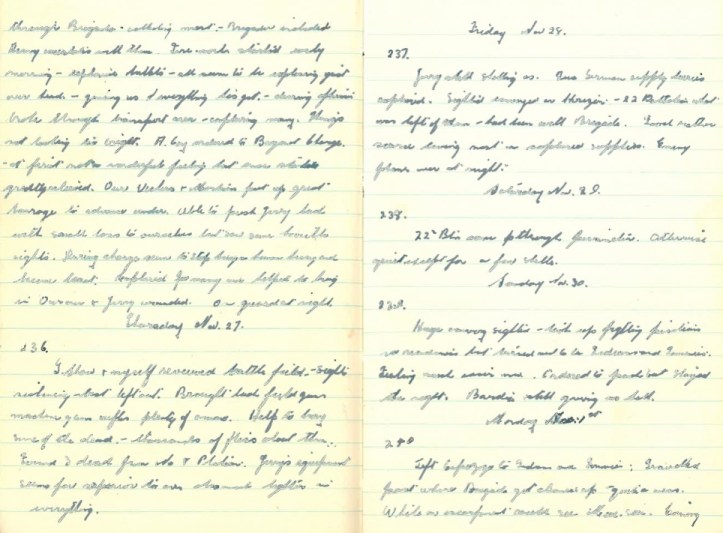 through Brigade - collecting most - Brigade included
Heavy with them. Fire-works started early
morning - explosive bullets - all seem to be exploring just
over head. - giving us everything he's got. - during afternoon
broke through transport area - capturing many. Things
not looking too bright. A Coy ordered to Bayonet Charge.
- at first not a wonderful feeling but once started
greatly relieved. Our Vickers & Mortars put up great
barrage to advance under. Able to push Jerry back
with small loss to ourselves but saw some horrible
sights. During charge seems to stop being a human being and
become beast. Captured Germans we helped to bring
in Ours & Jerry wounded. On guard at night
Thursday Nov. 27.
236.
& myself reviewed battle field. - Sights
sickening - best left out. Brought back field gun
machine guns rifles plenty of ammo. Help to bury
some of the dead. - thousands of flies about them.
Found 2 dead from No 8 Platoon. Jerry's equipment
seems far superior to ours also much lighter in
everything.
Friday Nov 28.
237.
Jerry still shelling us. Two German supply lorries
captured. Sighted convoy on Horizon - 22 Battalion what
was left of them - had been with Brigade. Food rather
scarce living most on captured supplies. Enemy
planes over at night.
Saturday Nov. 29.
238.
22nd Btn through perimeter. Otherwise
quiet except for a few shells.
Sunday Nov. 30.
239.
Huge convoy sighted - took up fighting positions
in readiness but turned out to be Indians and Tommies.
Feeling much easier now. Ordered to but stayed
the night. Bardia still giving us hell.
Monday Dec. 1st
240
Left Capuzzo to Indians and Tommies; Travelled
past where Brigade got cleaned up - area.
While on Enemy